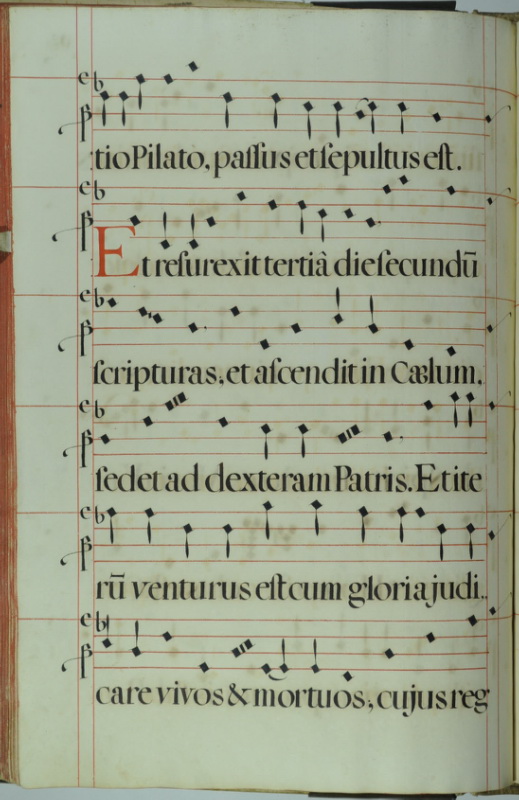 tio Pilato, paſſus et ſepultus eſt.
Et reſurexit tertiâ die ſecundū
ſcripturas, et aſcendit in Cælum,
ſedet ad dexteram Patris. Et ite
rū venturus eſt cum gloria judi..
care vivos & mortuos, cujus reg